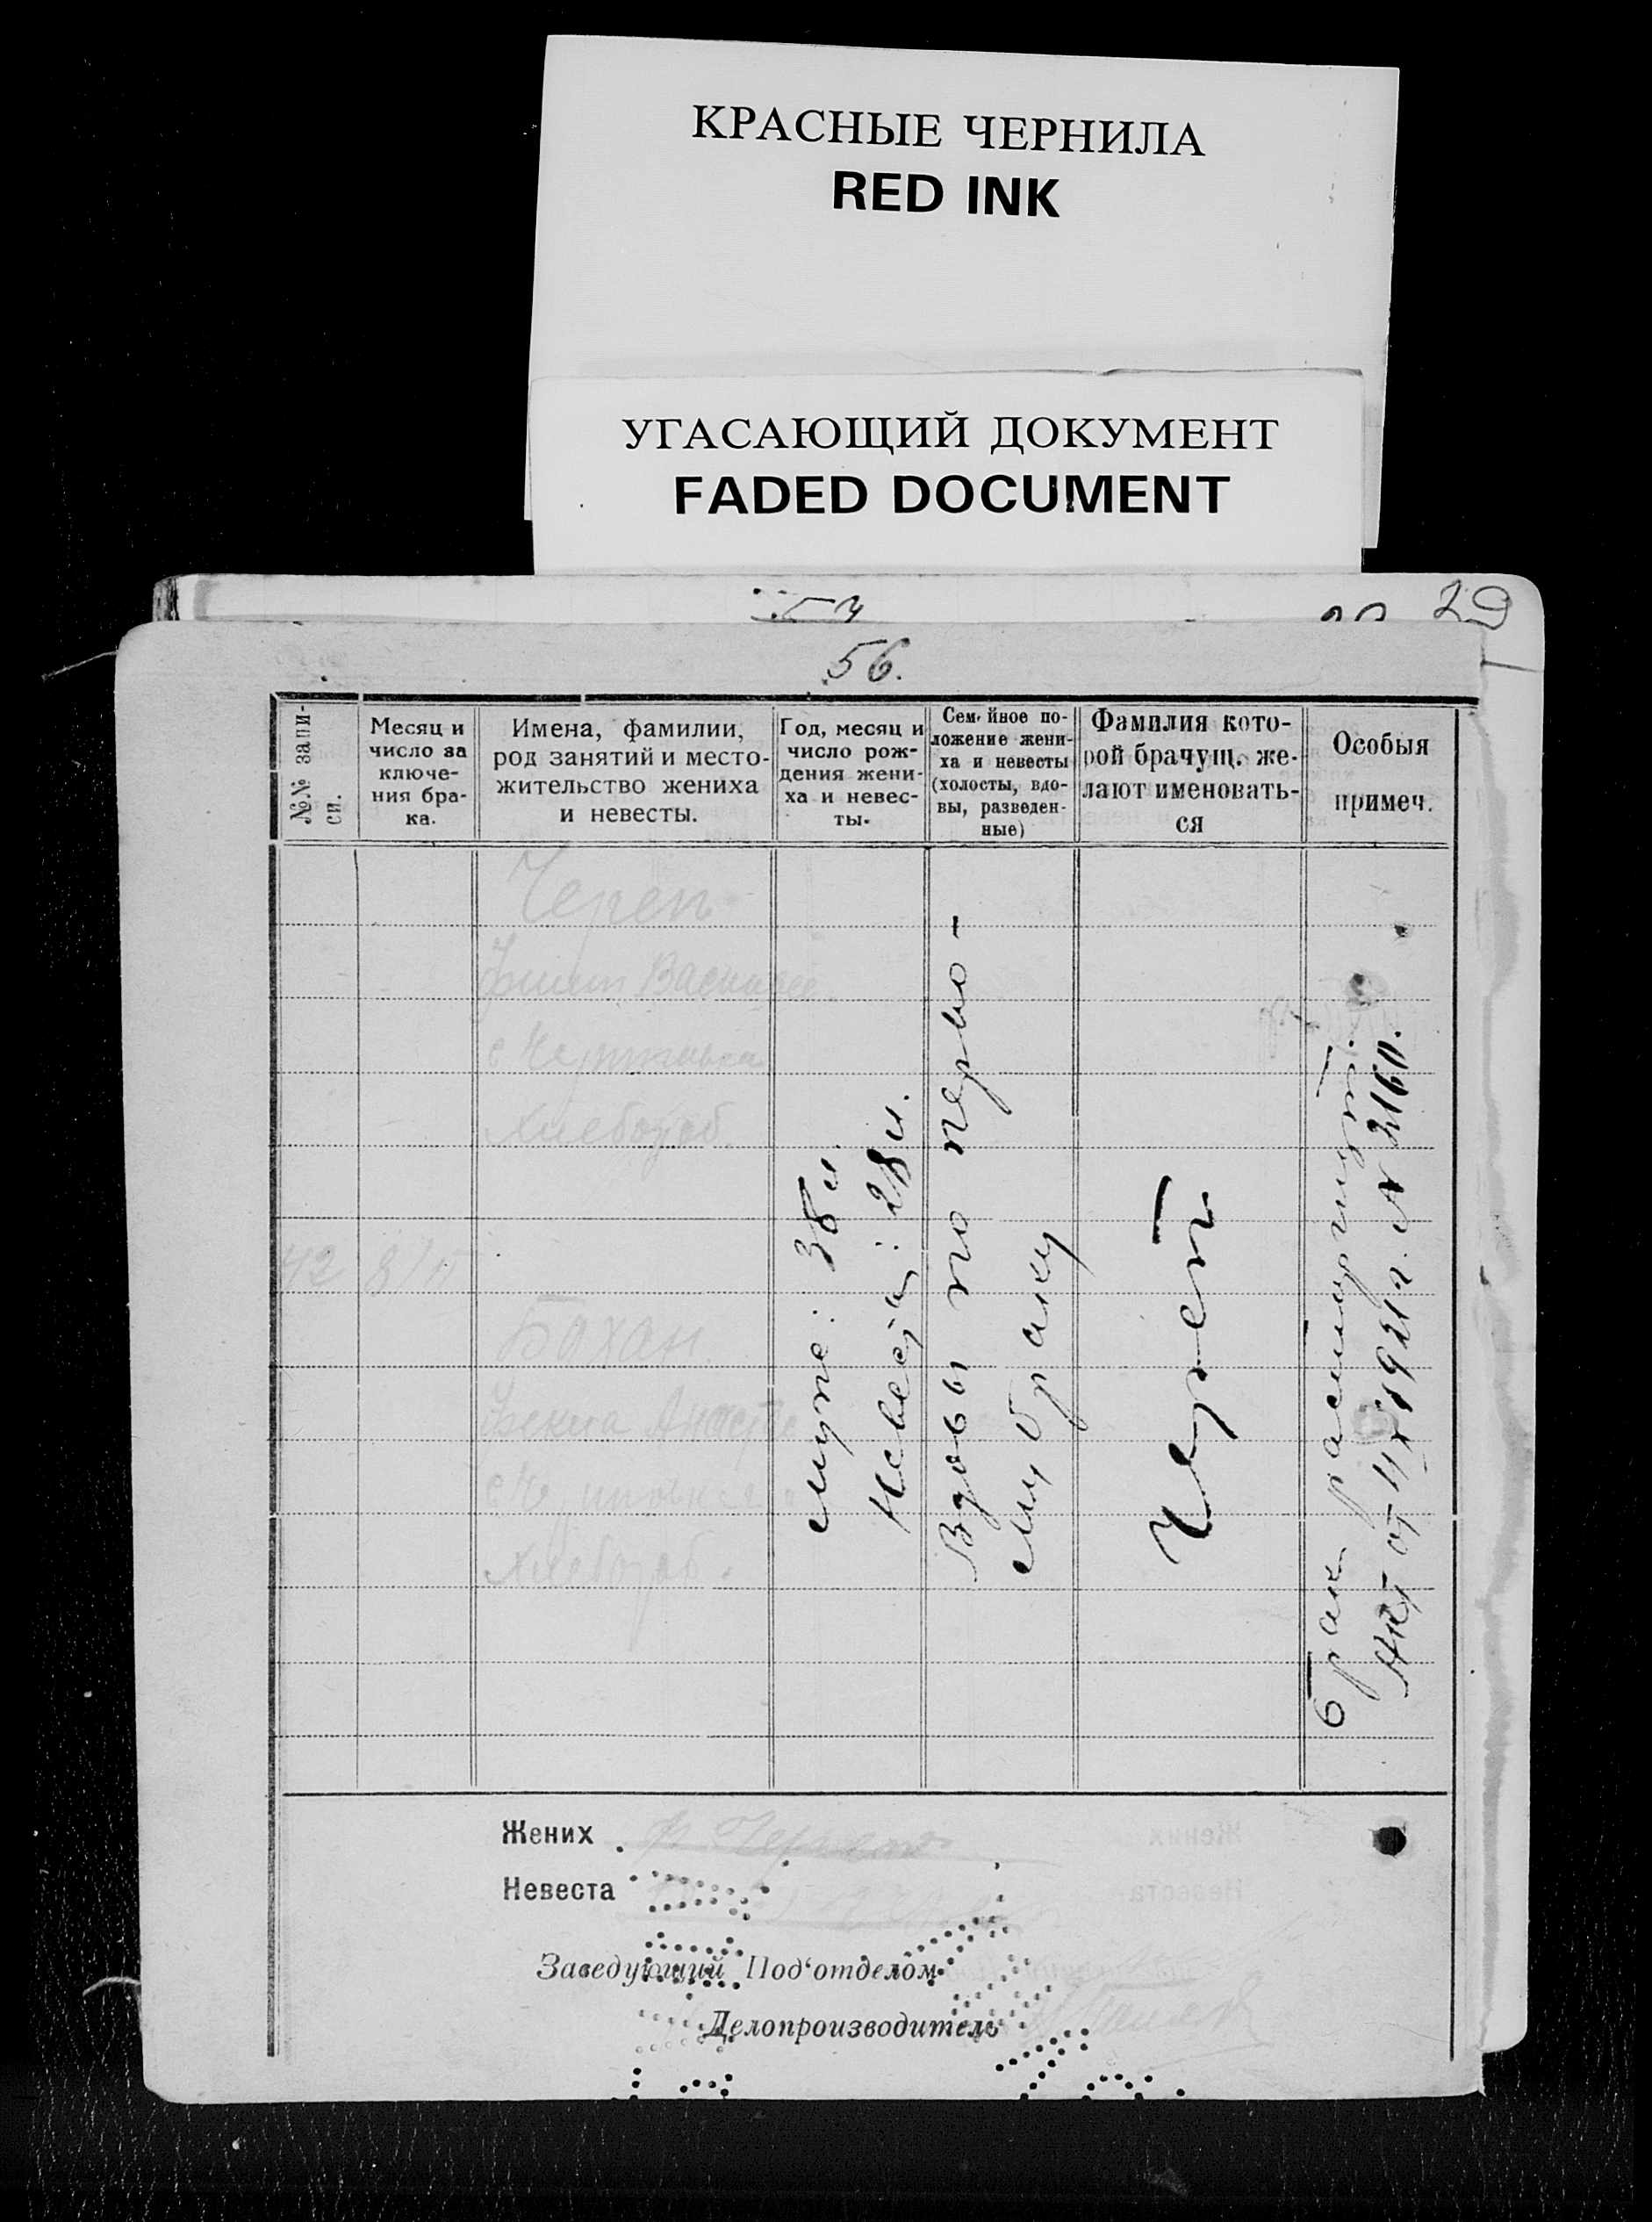 КРАСНЫЕ ЧЕРНИЛА
RED INK
УГАСАЮЩИЙ ДОКУМЕНТ
FADED DOCUMENT
29
56.
№№ запи-
си.
Месяц и
число за
ключе-
ния бра-
ка.
Имена, фамилии,
род занятий и место-
жительство жениха
и невесты.
Год, месяц и
число рож-
дения жени-
ха и невес-
ты.
Семейное по-
ложение жени-
ха и невесты
(холосты, вдо-
вы, разведен-
ные)
Фамилия кото-
рой брачущ. же-
лают именовать-
ся
Особыя
примеч.
42
8/II
Череп
Филип Василье
Хлебороб.
Бохан
Фекла
Хлебороб.
муже: 38 л.
Невесты: 28 л.
Вдовы по перво-
му браку
Череп
брак расторгнут.
Акт от 4/X 1921 г. № 2160.
Жених
Невеста
Заведующий Под'отделом
Делопроизводитель